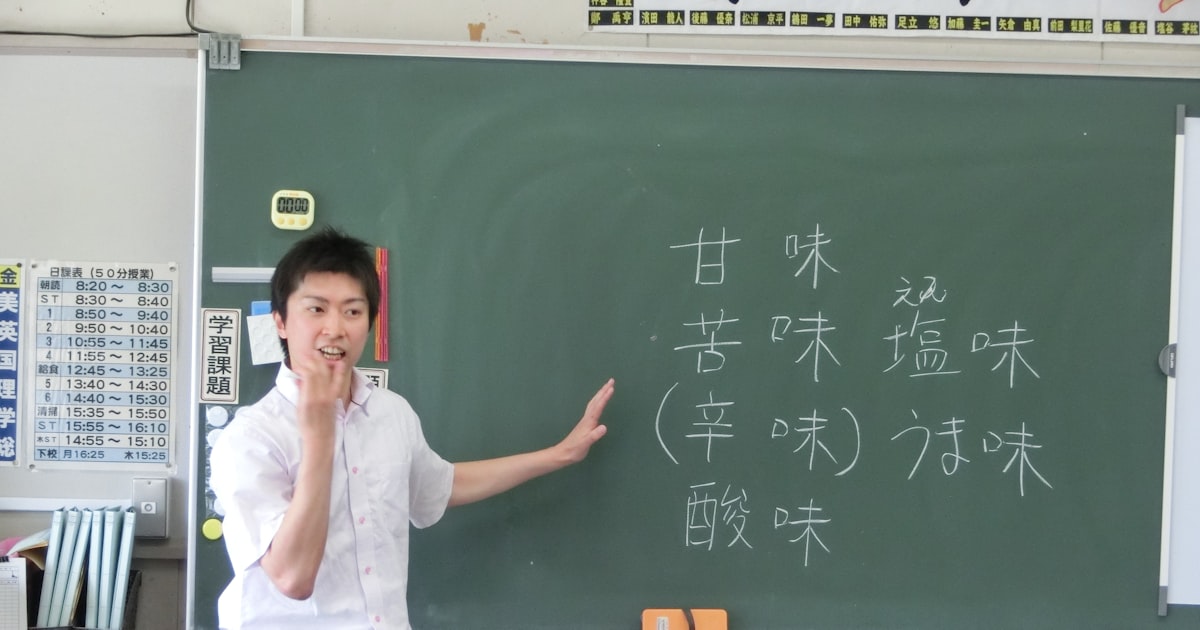 鄭 禹亨 濱田 龍人 後藤 優奈 松浦 京平 鶴田 一夢 田中 佑弥 足立 悠 加藤 圭一 矢倉 由真 前田 梨里花 佐藤 優香
00:00
金
美
英
国
理
学
総
日課表（50分授業）
朝読 8:20～ 8:30
ST 8:30～ 8:40
1 8:50～ 9:40
2 9:50～10:40
3 10:55～11:45
4 11:55～12:45
給食 12:45～13:25
5 13:40～14:30
6 14:40～15:30
清掃 15:35～15:50
ST 15:55～16:10
木ST 14:55～15:10
下校 月16:25 木15:25
学習課題
甘味
苦味
(辛味)
酸味
えん
塩味
うま味